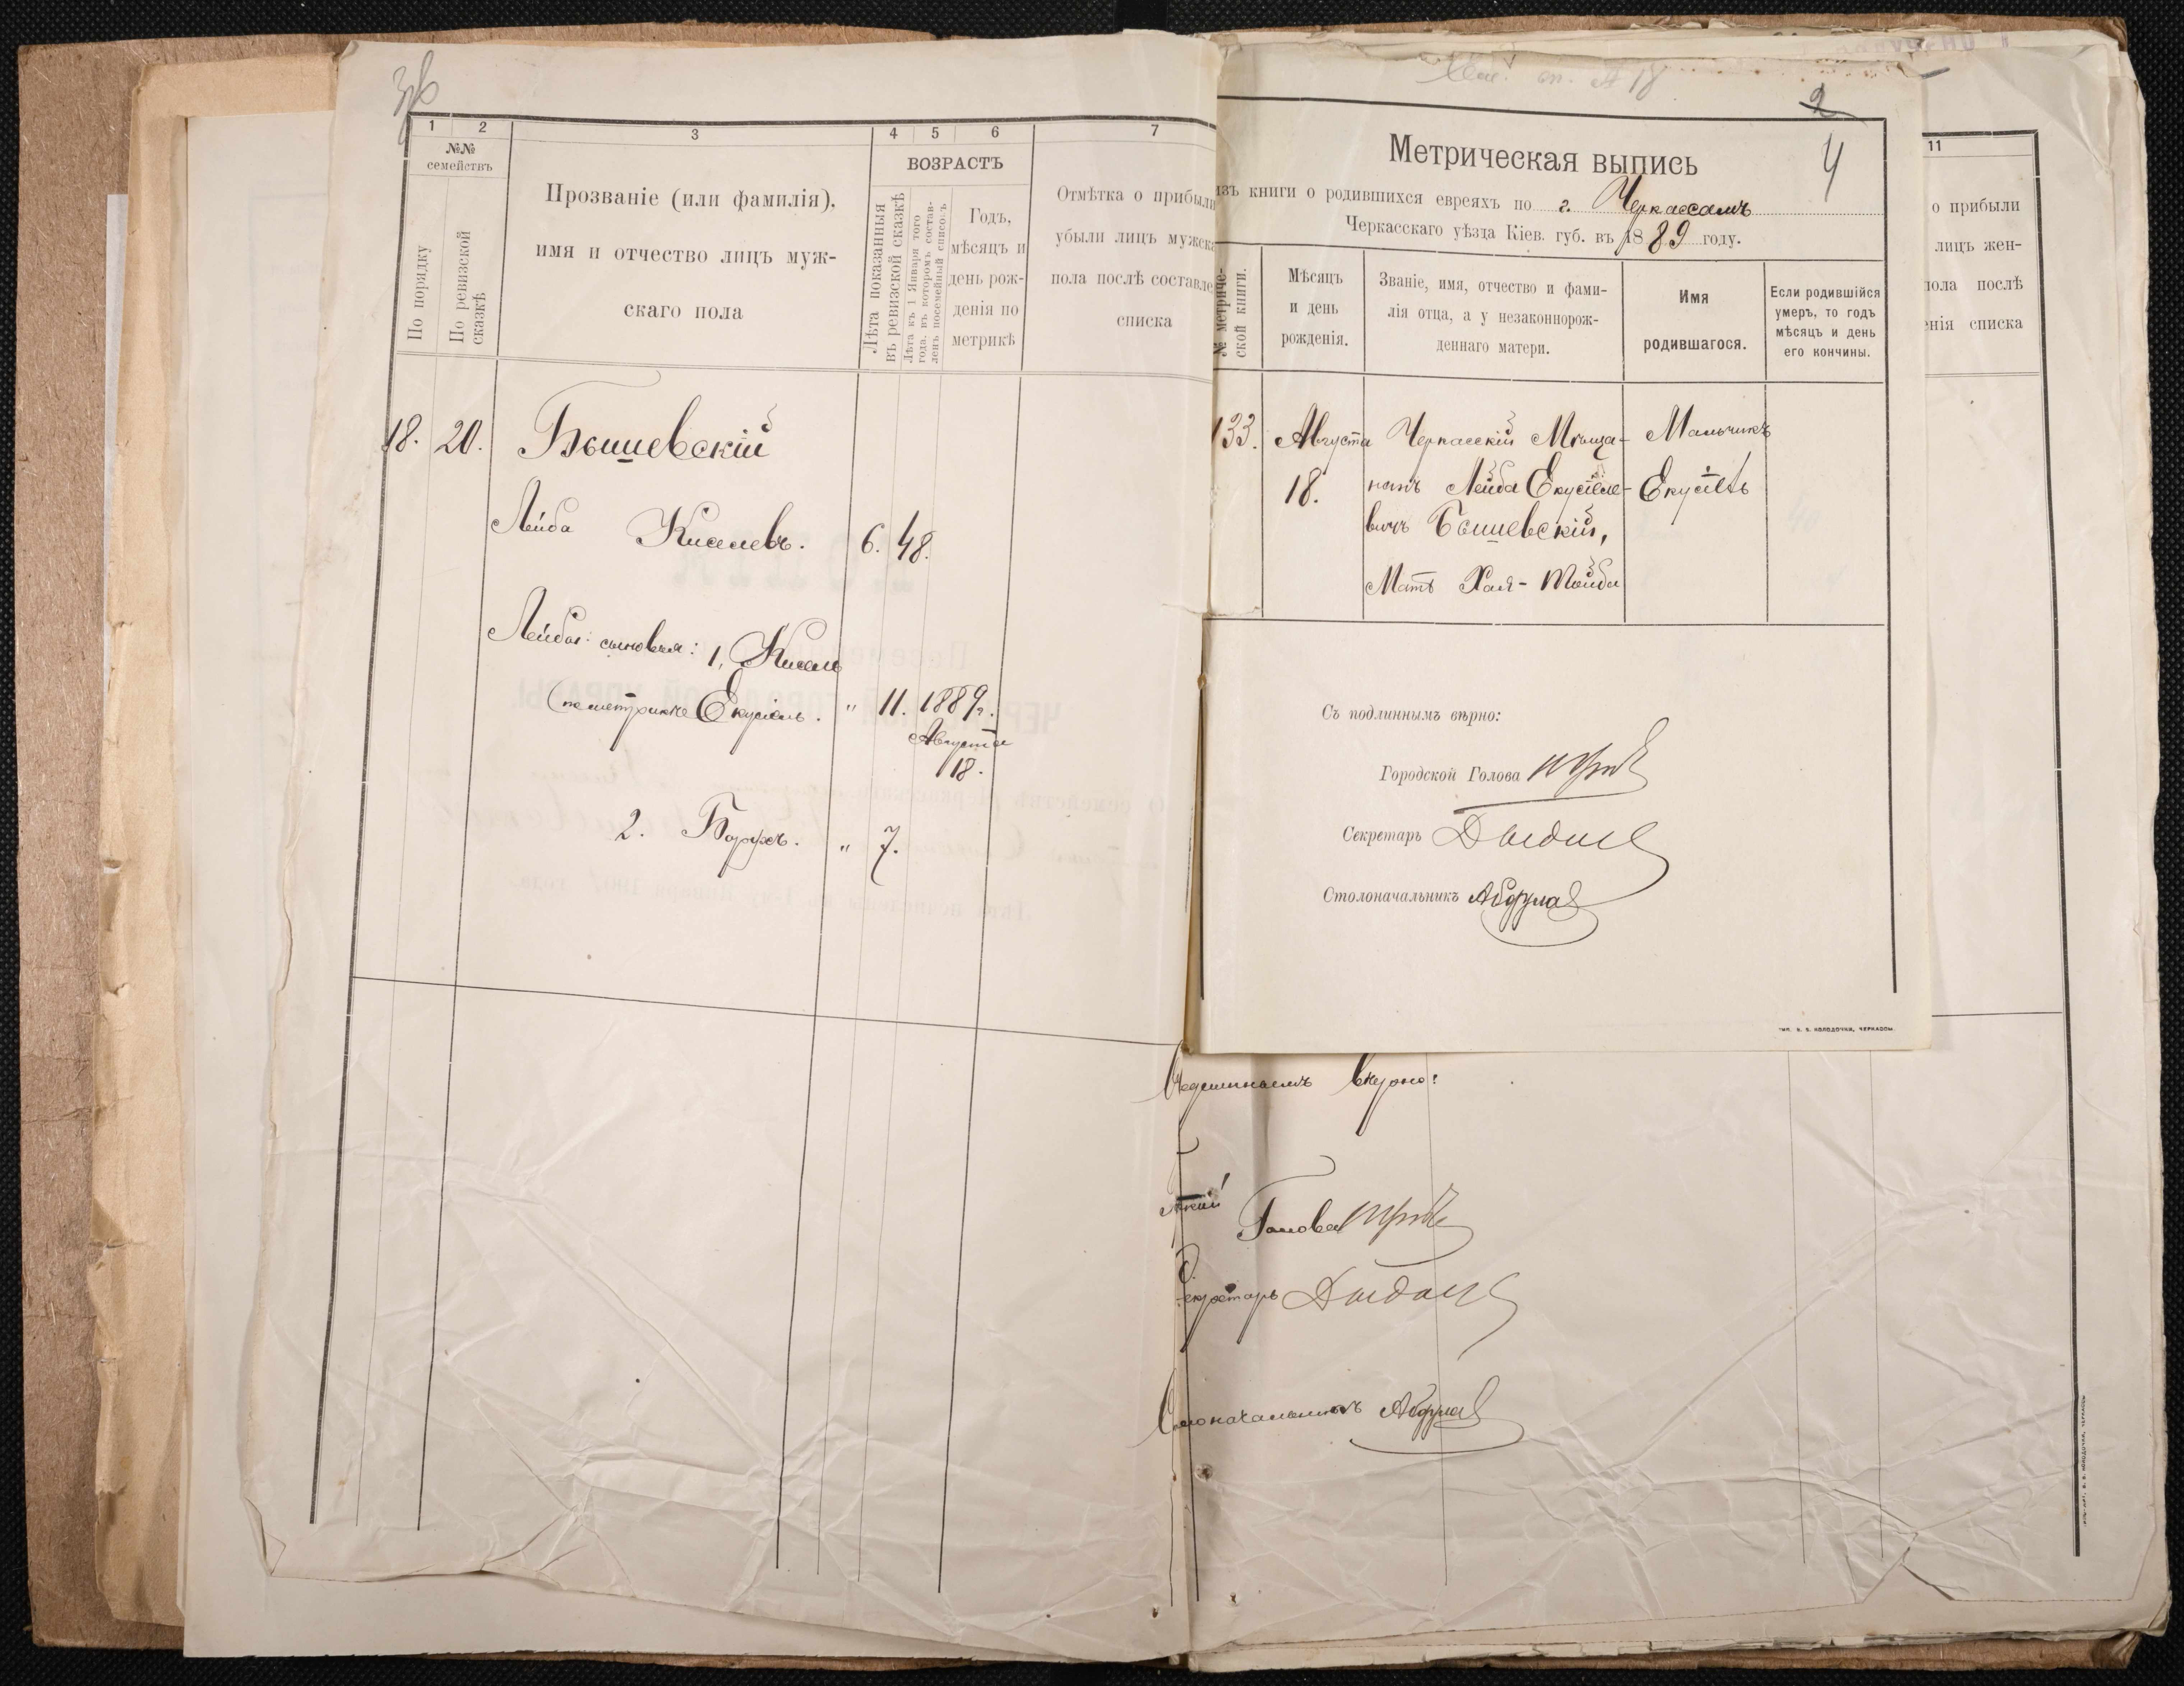 1 2 3 4 5 6 7
№№ семействъ
По порядку
По ревизской сказкѣ
Прозваніе (или фамилія),
имя и отчество лицъ муж-
скаго пола
ВОЗРАСТЪ
Лѣта показанныя въ ревизской сказкѣ
Лѣта къ 1 Января того года, въ которомъ состав-ленъ посемейный списокъ
Годъ,
мѣсяцъ и
день рож-
денія по
метрикѣ
Отмѣтка о прибыли
убыли лицъ мужска
пола послѣ составле
списка
18. 20. Бышевскій
Лейба Киселевъ. 6. 48.
Лейбы сыновья: 1, Кисель
(по метрикѣ Екусіель. " 11. 1889г.
Августа
18.
2. Борухъ. " 7.
№ 18
2
4
Метрическая выпись
изъ книги о родившихся евреяхъ по г. Черкассамъ
Черкасскаго уѣзда Кіев. губ. въ 1889 году.
№ метриче-
ской книги.
Мѣсяцъ
и день
рожденія.
Званіе, имя, отчество и фами-
лія отца, а у незаконнорож-
деннаго матери.
Имя
родившагося.
Если родившійся
умеръ, то годъ
мѣсяцъ и день
его кончины.
133. Августа Черкасскій Мѣща- Мальчикъ
18. нинъ Лейба Екусіеле- Екусіель
вичъ Бышевскій,
Мать Хая-Тойба
Съ подлиннымъ вѣрно:
Городской Голова
Секретарь
Столоначальникъ
ТИП. В. В. КОЛОДОЧКИ, ЧЕРКАССЫ.
11
о прибыли
лицъ жен-
пола послѣ
енія списка
подлиннымъ вѣрно:
Голова
екретарь
Столоначальникъ